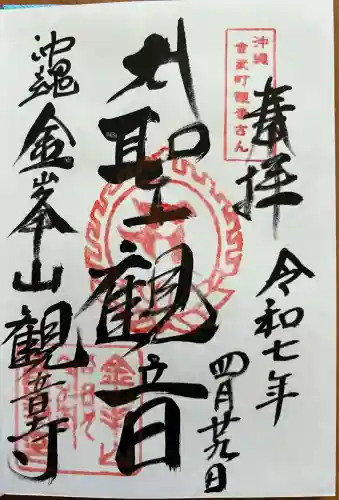 沖縄
金武町観音さん
奉拝
令和七年
四月廿九日
聖観音
沖縄
金峯山観音寺